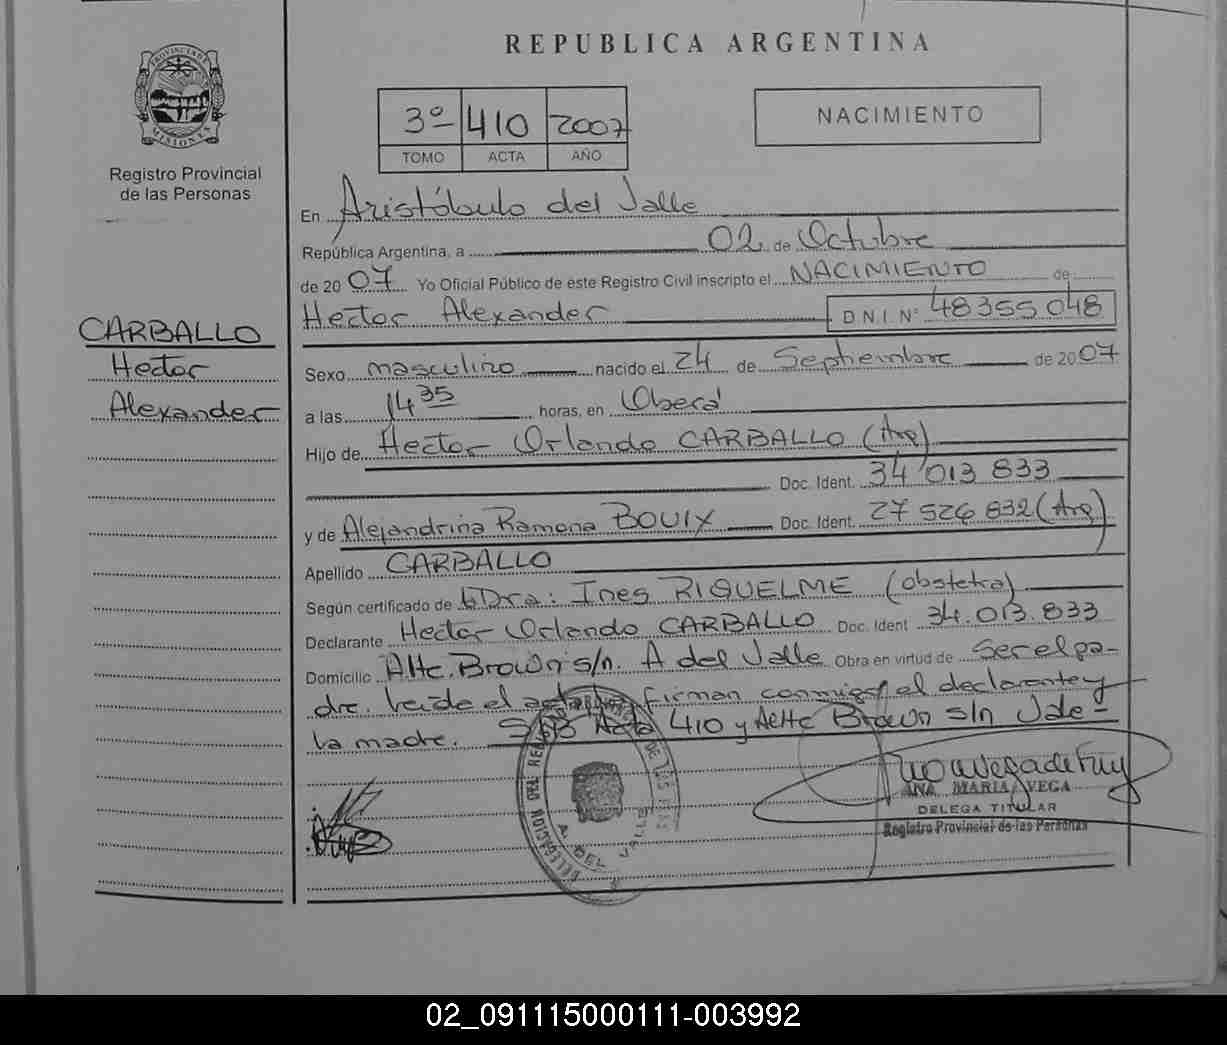 PROVINCIA DE
MISIONES
Registro Provincial
de las Personas
CARBALLO
Hector
Alexander
REPUBLICA ARGENTINA
3º 410 2007
TOMO ACTA AÑO
NACIMIENTO
En Aristóbulo del Valle
República Argentina, a 02 de Octubre
de 2007 Yo Oficial Público de este Registro Civil inscripto el NACIMIENTO de
Hector Alexander D.N.I. Nº 48355048
Sexo masculino nacido el 24 de Septiembre de 2007
a las 14 35 horas, en Oberá
Hijo de Hector Orlando CARBALLO (Arg)
Doc. Ident. 34 013 833
y de Alejandrina Ramona BOUIX Doc. Ident. 27 526 832 (Arg)
Apellido CARBALLO
Según certificado de Dra: Ines RIQUELME (obstetra)
Declarante Hector Orlando CARBALLO Doc. Ident 34.013.833
Domicilio Alte. Brown s/n. A del Valle Obra en virtud de ser el pa-
dre. Leida el acta firman conmigo el declarante y
la madre. S/B Acta 410 y Alte Brown s/n Vale-
DELEGACION DEL REGISTRO DE LAS
A. DEL VALLE
ANA MARIA VEGA
DELEGA TITULAR
Registro Provincial de las Personas
02_091115000111-003992